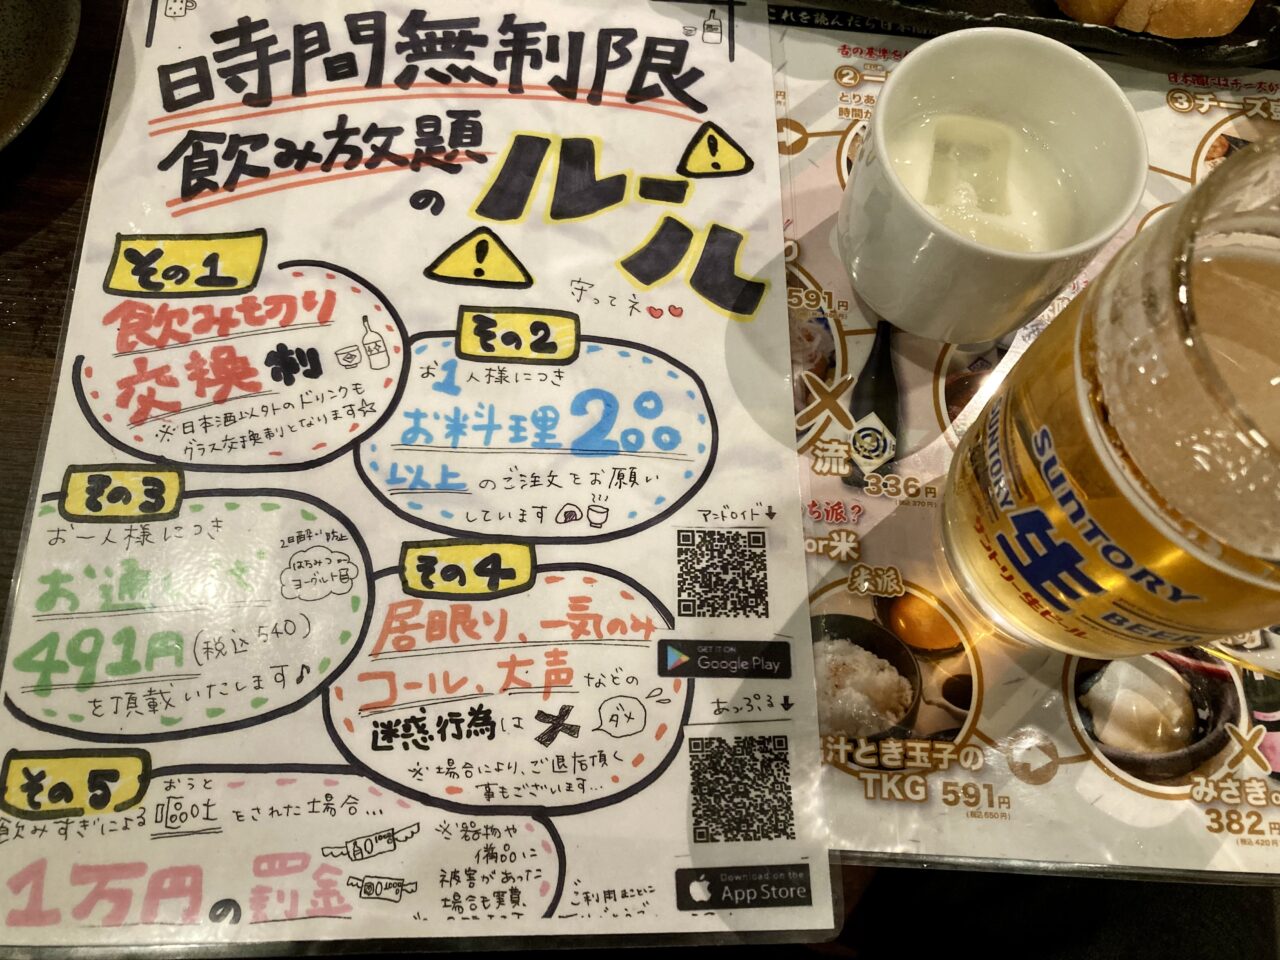 時間無制限
飲み放題
の
ルール
守ってネ
その1
飲みきり
交換制
※日本酒以外のドリンクも
グラス交換制となります☆
その2
お1人様につき
お料理2品
以上のご注文をお願い
しています
その3
お一人様につき
2日酔い防止
はちみつ
ヨーグルト
491円(税込540)
を頂戴いたします♪
その4
居眠り、一気のみ
コール、大声などの
迷惑行為は✕
ダメ
※場合により、ご退店頂く
事もございます…
その5
おうと
飲みすぎによる嘔吐をされた場合…
1万円の罰金
※器物や
備品に
被害があった
場合も実費、
アンドロイド↓
GET IT ON
Google Play
あっぷる↓
Download on the
App Store
これを読んだら日本
②一
とりあ
時間か
③チーズ
591円
流
336円
(税込370円)
ち派?
or米
米派
汁とき玉子の
TKG 591円
(税込650円)
みさき
382円
(税込420円)
SUNTORY
生
BEER
サントリー生ビール
SUNTORY